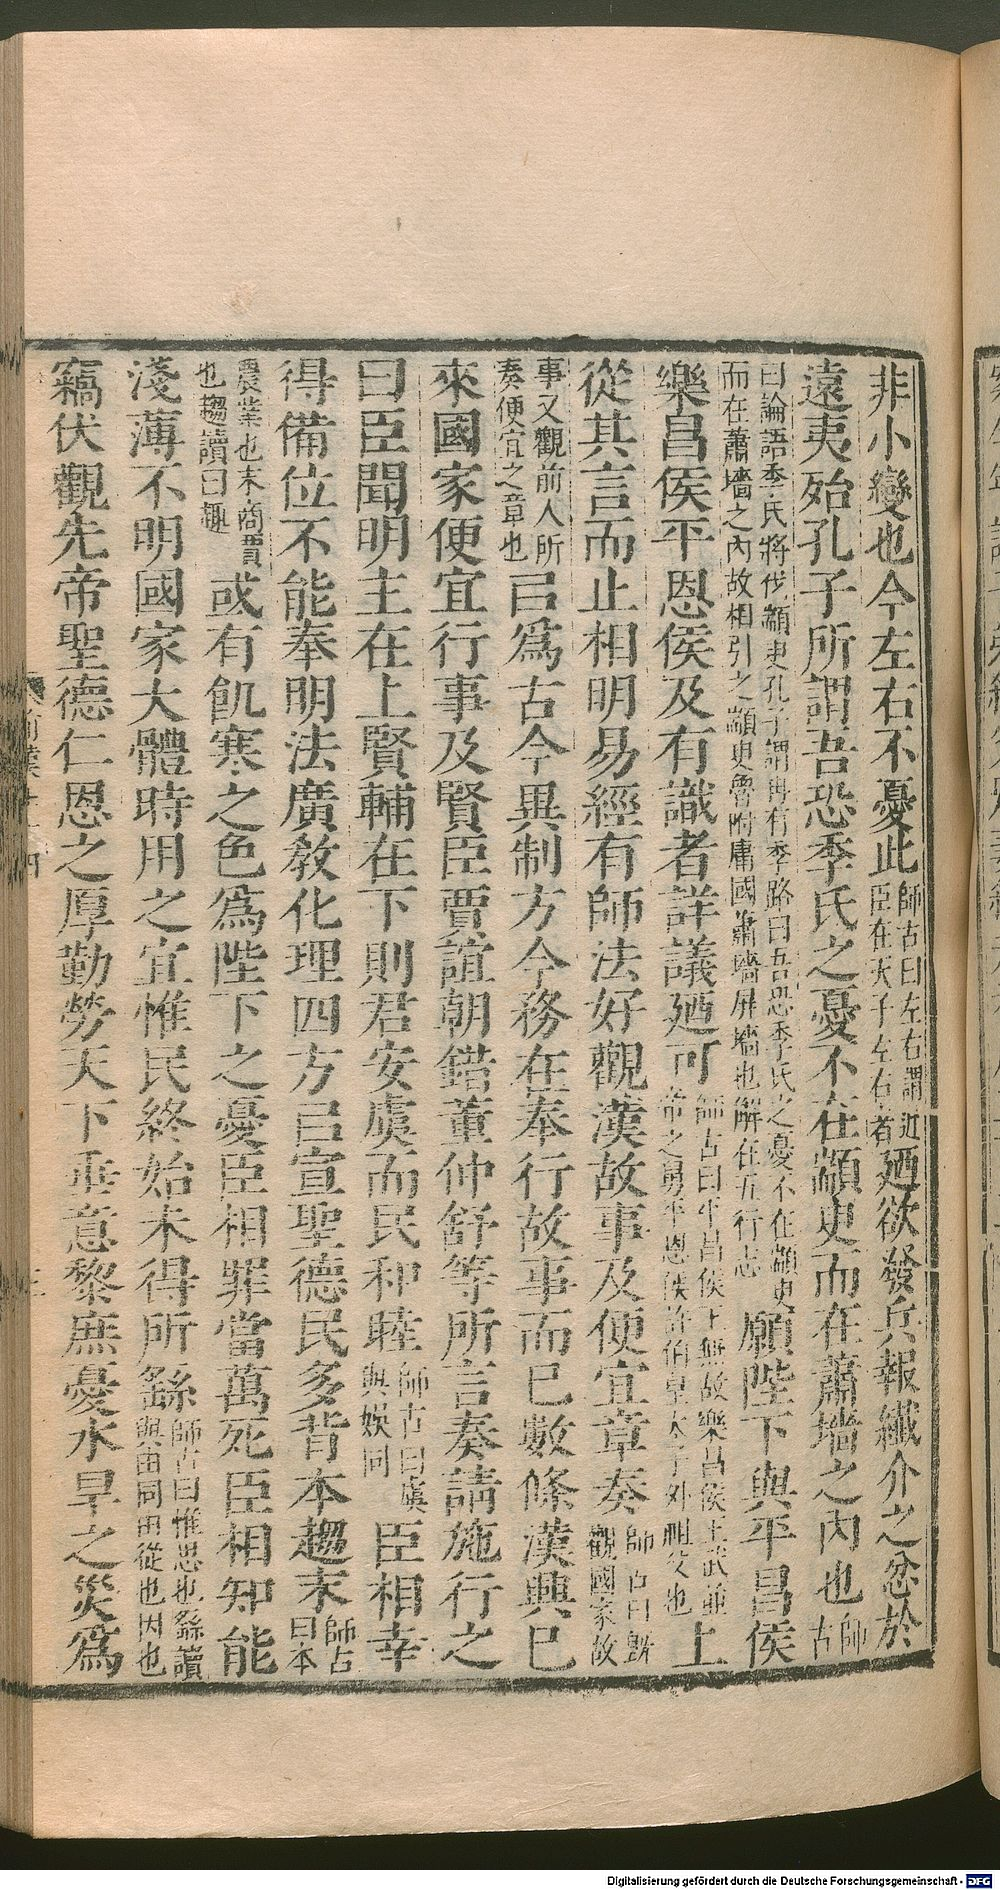 非小變也今左右不憂此師古曰左右謂近臣在天子左右者廼欲發兵報纖介之忿於
遠夷殆孔子所謂吾恐季氏之憂不在顓臾而在蕭墻之內也師古
曰論語季氏將伐顓臾孔子謂冉有季路曰吾恐季氏之憂不在顓臾而在蕭墻之內故相引之顓臾魯附庸國蕭墻屏墻也解在五行志願陛下與平昌侯
樂昌侯平恩侯及有識者詳議廼可師古曰平昌侯王無故樂昌侯王武並帝之舅平恩侯許伯皇太子外祖父也上
從其言而止相明易經有師法好觀漢故事及便宜章奏師古曰旣觀國家故
事又觀前人所奏便宜之章也㠯爲古今異制方今務在奉行故事而已數條漢興已
來國家便宜行事及賢臣賈誼朝錯董仲舒等所言奏請施行之
曰臣聞明主在上賢輔在下則君安虞而民和睦師古曰虞與娛同臣相幸
得備位不能奉明法廣教化理四方㠯宣聖德民多背本趨末師古曰本
農業也末商賈也趨讀曰趣或有飢寒之色爲陛下之憂臣相罪當萬死臣相知能
淺薄不明國家大體時用之宜惟民終始未得所繇師古曰惟思也繇讀與由同由從也因也
竊伏觀先帝聖德仁恩之厚勤勞天下垂意黎庶憂水旱之災爲
Digitalisierung gefördert durch die Deutsche Forschungsgemeinschaft - DFG